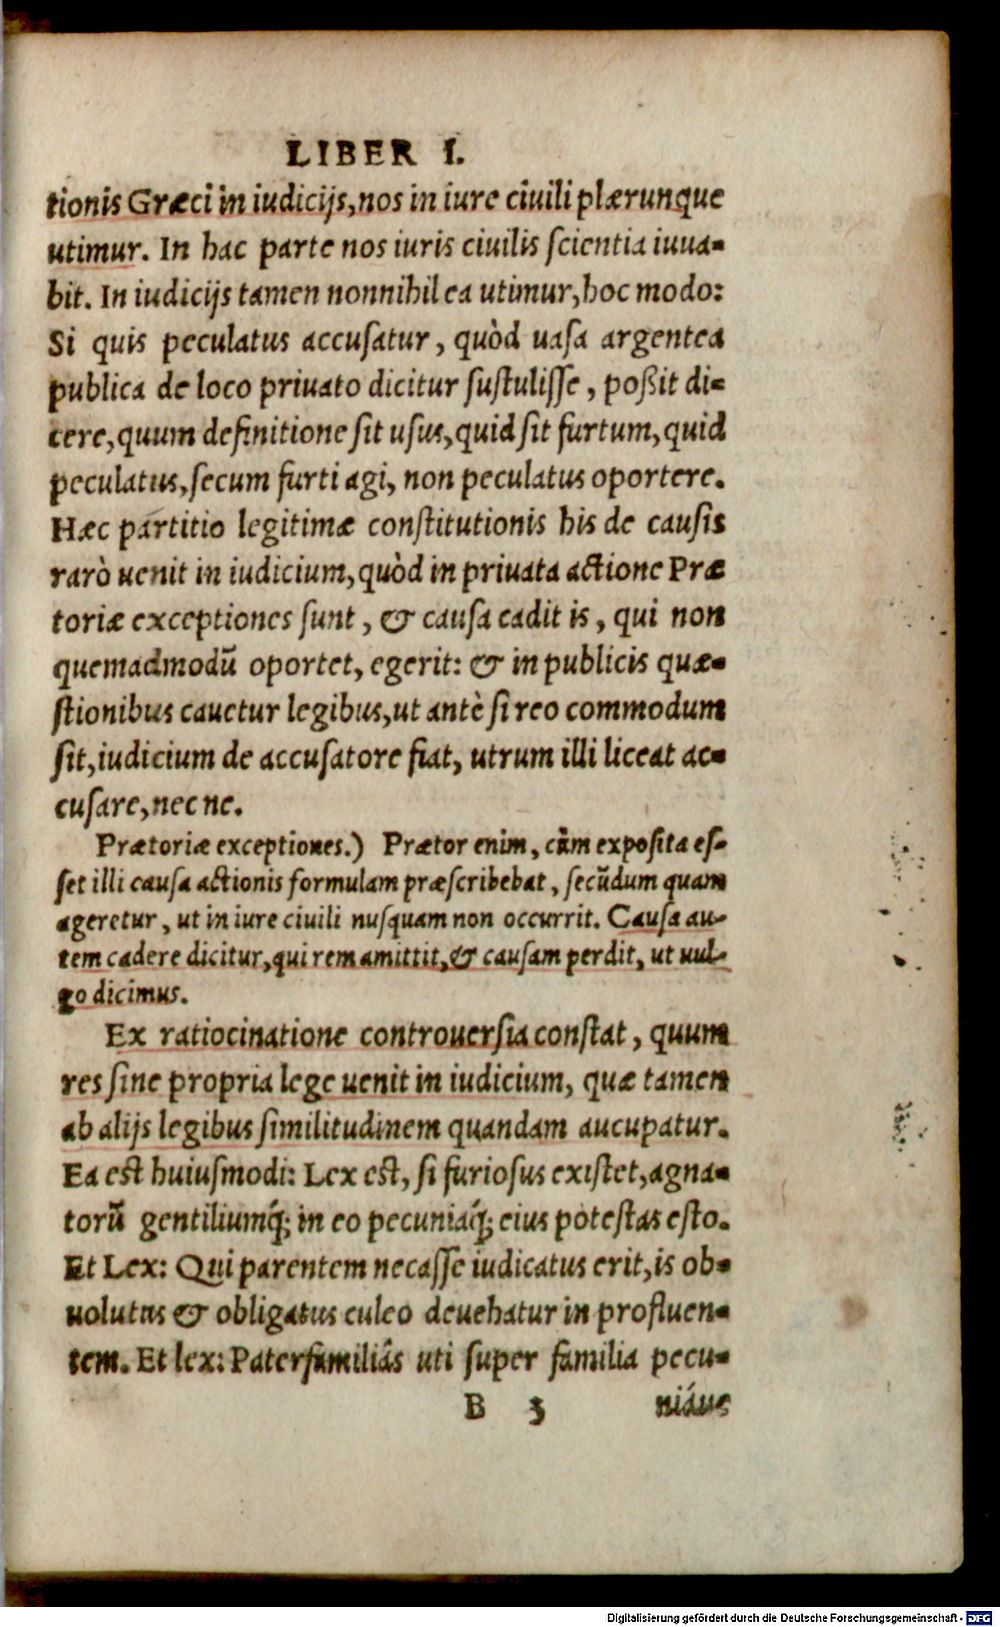 LIBER I.
tionis Græci in iudicijs, nos in iure ciuili plærunque
utimur. In hac parte nos iuris ciuilis scientia iuua-
bit. In iudicijs tamen nonnihil ea utimur, hoc modo:
Si quis peculatus accusatur, quòd uasa argentea
publica de loco priuato dicitur sustulisse, poßit di-
cere, quum definitione sit usus, quid sit furtum, quid
peculatus, secum furti agi, non peculatus oportere.
Hæc partitio legitimæ constitutionis his de causis
rarò uenit in iudicium, quòd in priuata actione Præ
toriæ exceptiones sunt, & causa cadit is, qui non
quemadmodū oportet, egerit: & in publicis quæ-
stionibus cauetur legibus, ut antè si reo commodum
sit, iudicium de accusatore fiat, utrum illi liceat ac-
cusare, nec ne.
Prætoriæ exceptiones.) Prætor enim, cùm exposita es-
set illi causa actionis formulam præscribebat, secūdum quam
ageretur, ut in iure ciuili nusquam non occurrit. Causa au-
tem cadere dicitur, qui rem amittit, & causam perdit, ut uul-
go dicimus.
Ex ratiocinatione controuersia constat, quum
res sine propria lege uenit in iudicium, quæ tamen
ab alijs legibus similitudinem quandam aucupatur.
Ea est huiusmodi: Lex est, si furiosus existet, agna-
torū gentiliumq́; in eo pecuniaq́; eius potestas esto.
Et Lex: Qui parentem necasse iudicatus erit, is ob-
uolutus & obligatus culeo deuehatur in profluen-
tem. Et lex: Paterfamiliâs uti super familia pecu-
B 3 niáue
Digitalisierung gefördert durch die Deutsche Forschungsgemeinschaft - DFG